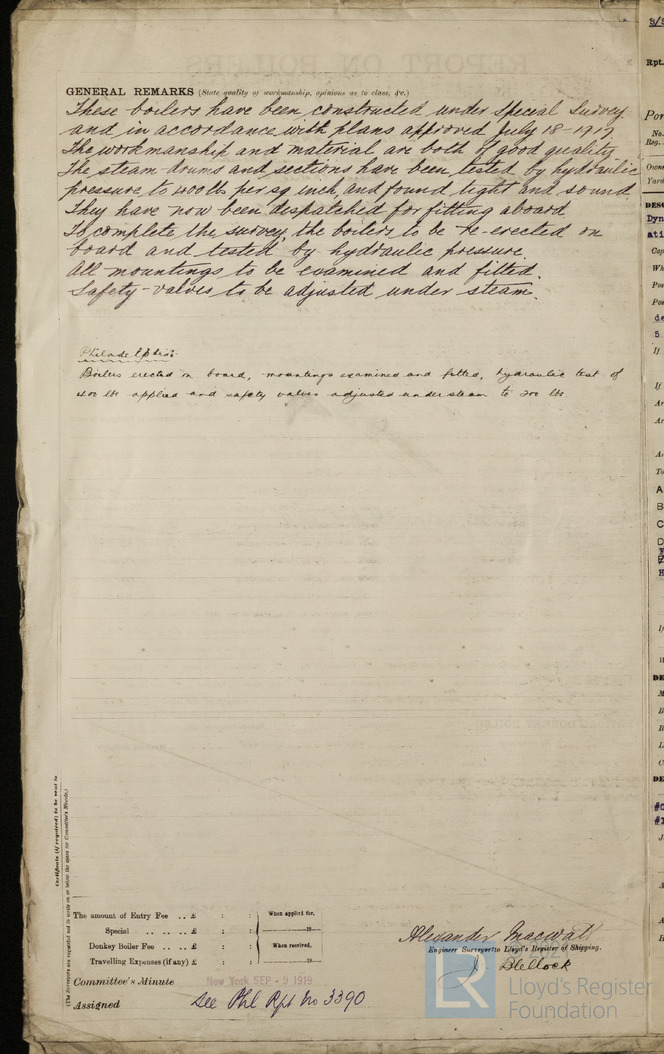 GENERAL REMARKS (State quality of workmanship, opinions as to class, &c.)
These boilers have been constructed under Special Survey
and in accordance with plans approved July 18-1917.
The workmanship and material are both of good quality
The steam drums and sections have been tested by hydraulic
pressure to 400 lbs per sq inch and found tight and sound.
They have now been despatched for fitting aboard.
To complete the survey, the boilers to be re-erected on
board and tested by hydraulic pressure.
All mountings to be examined and fitted.
Safety-valves to be adjusted under steam.
Philadelphia:
Boilers erected on board, mountings examined and fitted, hydraulic test of
400 lbs applied and safety valves adjusted under steam to 200 lbs.
Certificate (if required) to be sent to
(The Surveyors are requested not to write on or below the space for Committee's Minute.)
The amount of Entry Fee .. £ : :
When applied for,
Special .. .. .. £ : :
19
Donkey Boiler Fee .. .. £ : :
When received,
Travelling Expenses (if any) £ : :
19
Alexander Macwat
Engineer Surveyor to Lloyd's Register of Shipping.
Committee's Minute
New York SEP -9 1919
Assigned
See Phl Rpt No 3390
LR
Lloyd's Register
Foundation
Rpt.
No.
Reg.